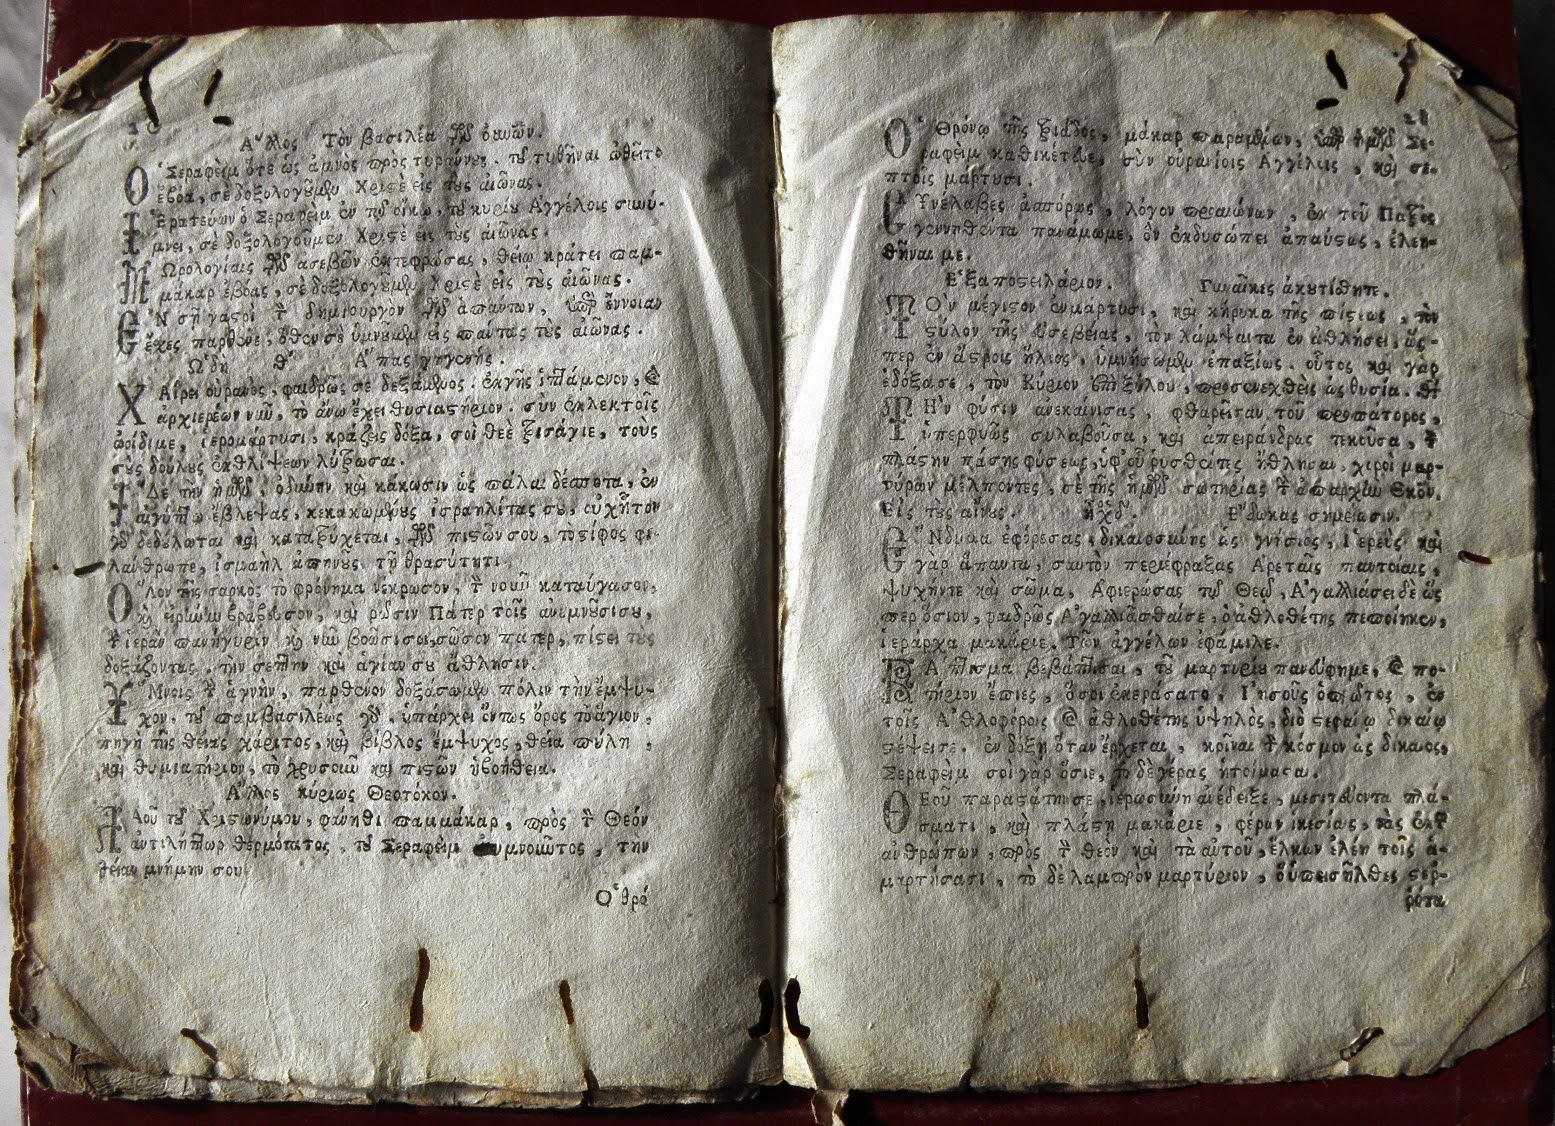 Ἄλλος Τὸν βασιλέα τῶν οὐρανῶν.
Ὁ Σεραφεὶμ ὅτε ὡς ἀμνὸς πρὸς τυράννου. τοῦ τυθῆναι ὠθεῖτο
ἐβόα, σὲ δοξολογοῦμεν Χριστὲ εἰς τοὺς αἰῶνας.
Ἱερατεύων ὁ Σεραφεὶμ ἐν τῷ οἴκῳ, τοῦ κυρίου Ἀγγέλοις συνύ-
μνει, σὲ δοξολογοῦμεν Χριστὲ εἰς τοὺς αἰῶνας.
Μωρολογίαις τῶν ἀσεβῶν ἐκτεφρώσας, θείῳ κράτει παμ-
μάκαρ ἐβόας, σὲ δοξολογοῦμεν Χριστὲ εἰς τοὺς αἰῶνας.
Ἐν σῇ γαστρὶ τὸν δημιουργὸν τῶν ἁπάντων, ὑπὲρ ἔννοιαν
ἔχες παρθένε, ὅθεν σὲ ὑμνοῦμεν εἰς πάντας τοὺς αἰῶνας.
Ὠδὴ θ' Ἅπας γηγενής.
Χαίρει οὐρανὸς, φαιδρῶς σὲ δεξάμενος. ἐκ γῆς ἱπτάμενον, καὶ
ἀρχιερέων νῦν, τὸ ἄνω ἔχει θυσιαστήριον. σὺν ἐκλεκτοῖς
ἀοίδιμε, ἱερομάρτυσι, κράζεις δόξα, σοὶ θεὲ τρισάγιε, τοὺς
σοὺς δούλους ἐκ θλίψεων λύτρωσαι.
Ἴδε τὴν ἡμῶν, ὀδύνην καὶ κάκωσιν ὡς πάλαι δέσποτα, ἐν
αἰγύπτῳ ἔβλεψας, κεκακωμένους ἰσραηλίτας σου,
γὰρ δεδούλωται καὶ κατατρύχεται, τῶν πιστῶν σου, τὸ ξίφος φι-
λάνθρωπε, ἰσμαὴλ ἀπηνοῦς τῇ θρασύτητι.
Ὅλον τῆς σαρκὸς τὸ φρόνημα νέκρωσον, τὸν νοῦν καταύγασον,
καὶ εἰρήνην βράβευσον, καὶ ῥῶσιν Πάτερ τοῖς ἀνυμνοῦσί σου,
τὴν ἱερὰν πανήγυριν καὶ νῦν βοῶσί σοι, σῶσον πάτερ, πίστει τοὺς
δοξάζοντας, τὴν σεπτὴν καὶ ἁγίαν σου ἄθλησιν.
Ὕμνοις τὴν ἁγνὴν, παρθένον δοξάσωμεν πόλιν τὴν ἔμψυ-
χον. τοῦ παμβασιλέως γὰρ, ὑπάρχει ὄντως ὄρος τὸ ἅγιον,
πηγὴ τῆς θείας χάριτος, καὶ βίβλος ἔμψυχος, θεία πύλη,
καὶ θυμιατήριον, τὸ χρυσοῦν καὶ πιστῶν ἡ βοήθεια.
Ἄλλος κυρίως Θεοτόκον.
Λαοῦ τοῦ Χριστωνύμου, φάνηθι παμμάκαρ, πρὸς τὸν Θεὸν
ἀντιλήπτωρ θερμότατος, τοῦ Σεραφεὶμ ἀνυμνοῦντος, τὴν
θείαν μνήμην σου
Ὁ θρό
Ὁ Θρόνῳ τῆς τριάδος, μάκαρ παραμένων, ὑπὲρ ἡμῶν Σε-
ραφεὶμ καθικέτευε, σὺν οὐρανίοις Ἀγγέλοις, καὶ σε-
πτοῖς μάρτυσι.
Συνέλαβες ἀσπόρως, λόγον πρὸ αἰώνων, ἐκ τοῦ Πατρὸς
γεννηθέντα πανάμωμε, ὃν ἐκδυσώπει ἀπαύστως, ἐλεη-
θῆναί με.
Ἐξαποστειλάριον. Γυναῖκες ἀκουτίσθητε.
Τὸν μέγιστον ἐν μάρτυσι, καὶ κήρυκα τῆς πίστεως, τὸν
στύλον τῆς εὐσεβείας, τὸν λάμψαντα ἐν ἀθλήσει, ὥς-
περ ἐν ἄστροις ἥλιος, ὑμνήσωμεν ἐπαξίως. οὗτος καὶ γὰρ
ἐδόξασε, τὸν Κύριον ἐπὶ ξύλου, προσενεχθεὶς ὡς θυσία.
Τὴν φύσιν ἀνεκαίνισας, φθαρεῖσαν τοῦ προπάτορος,
ὑπερφυῶς συλλαβοῦσα, καὶ ἀπειράνδρως τεκοῦσα, τὸν
πλάστην πάσης φύσεως, ὑφ' οὗ ῥυσθέντες ἤθλησαν, χοροὶ μαρ-
τύρων μέλποντες, σὲ τῆς ἡμῶν σωτηρίας τὴν ἀπαρχὴν Θεοτόκε.
Εἰς τοὺς αἴνους. ἦχος δ'. Ἔδωκας σημείωσιν.
Ἔνδυμα ἐφόρεσας, δικαιοσύνης ὡς γνήσιος, Ἱερεὺς καὶ
γὰρ ἅπαντα, σαυτὸν περιέφραξας Ἀρεταῖς παντοίαις,
ψυχήν τε καὶ σῶμα, Ἀφιερώσας τῷ Θεῷ, Ἀγαλλιάσει δὲ ὥς
περ ὅσιον, φαιδρῶς Ἀγαλλιᾶσθαί σε, ὁ ἀθλοθέτης πεποίηκεν,
ἱεράρχα μακάριε, Τῶν ἀγγέλων ἐφάμιλλε.
Βάπτισμα βεβάπτισαι, τοῦ μαρτυρίου πανεύφημε, καὶ πο-
τήριον ἔπιες, ὅ σοι ἐκεράσατο, Ἰησοῦς ὁ πρῶτος, ἐν
τοῖς Ἀθλοφόροις καὶ ἀθλοθέτης ὑψηλὸς, διὸ στεφάνῳ δικαίῳ
στέψει σε, ἐν δόξῃ ὅταν ἔρχεται, κρῖναι τὸν κόσμον ὡς δίκαιος,
Σεραφεὶμ σοὶ γὰρ ὅσιε, τόδε γέρας ἡτοίμασται.
Θεοῦ παραστάτην σε, ἱερωσύνη ἀνέδειξε, μεσιτεύοντα πλά-
σματι, καὶ πλάστῃ μακάριε, φέρων ἱκεσίας, τὰς ἐκ τῶν
ἀνθρώπων, πρὸς τὸν θεὸν καὶ τὰ αὐτοῦ, ἕλκων ἐλέη τοῖς ἁ-
μαρτήσασι, τὸ δὲ λαμπρὸν μαρτύριον, ὃ ὑπεισῆλθες στερ-
ρότα